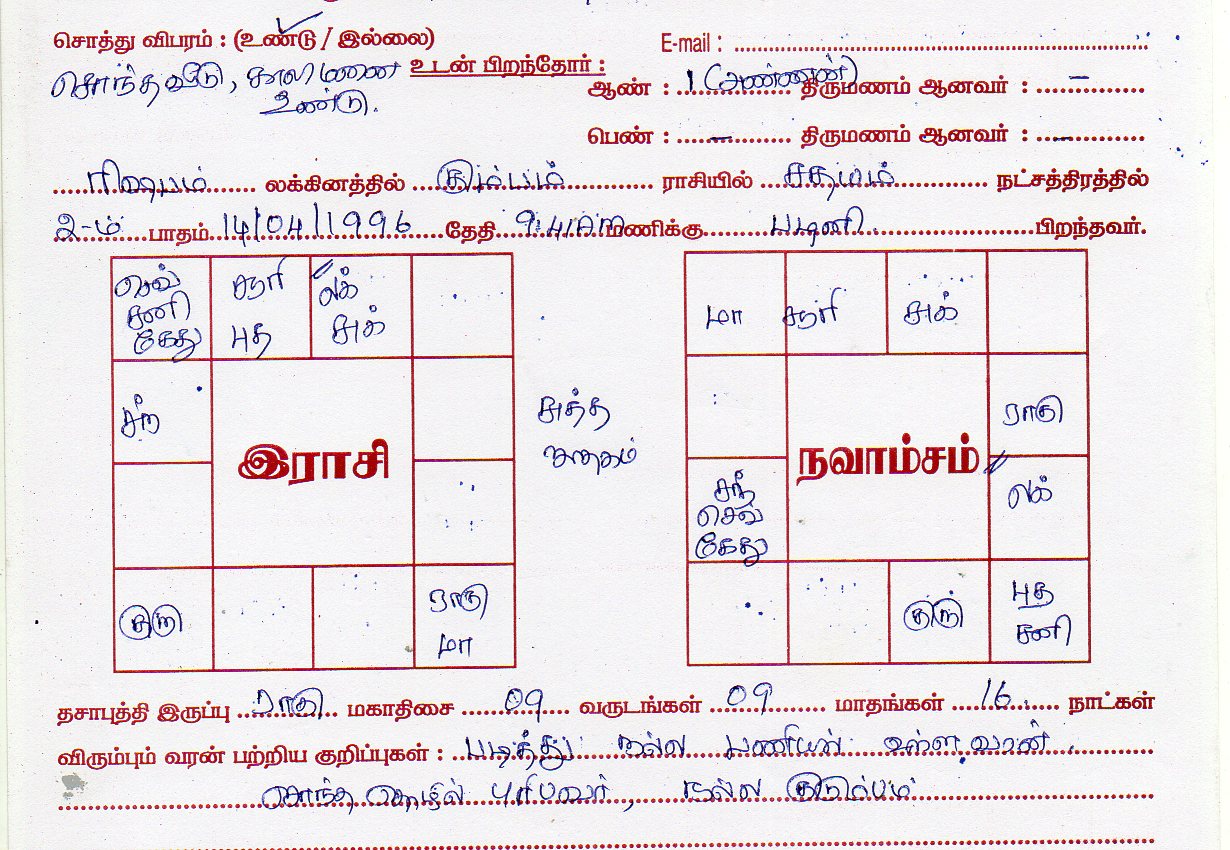 சொத்து விபரம் : (உண்டு / இல்லை)
E-mail :
சொந்த வீடு, காலி மனை
உண்டு.
உடன் பிறந்தோர் :
ஆண் : 1 (அண்ணன்) திருமணம் ஆனவர் : –
பெண் : – திருமணம் ஆனவர் : –
ரிஷபம் லக்கினத்தில் கும்பம் ராசியில் சதயம் நட்சத்திரத்தில்
2-ம் பாதம் 14/04/1996 தேதி 9:41AM மணிக்கு பழனி பிறந்தவர்.
செவ் சூரி லக்
சனி புத சுக்
கேது
சந்
இராசி
குரு ராகு
மா
சுத்த
ஜாதகம்
மா சூரி சுக்
ராகு
நவாம்சம்
சந் லக்
செவ்
கேது
குரு புத
சனி
தசாபுத்தி இருப்பு ராகு மகாதிசை 09 வருடங்கள் 09 மாதங்கள் 16 நாட்கள்
விரும்பும் வரன் பற்றிய குறிப்புகள் : படித்து நல்ல பணியில் உள்ள வரன்.
சொந்த தொழில் புரிபவர், நல்ல குடும்பம்